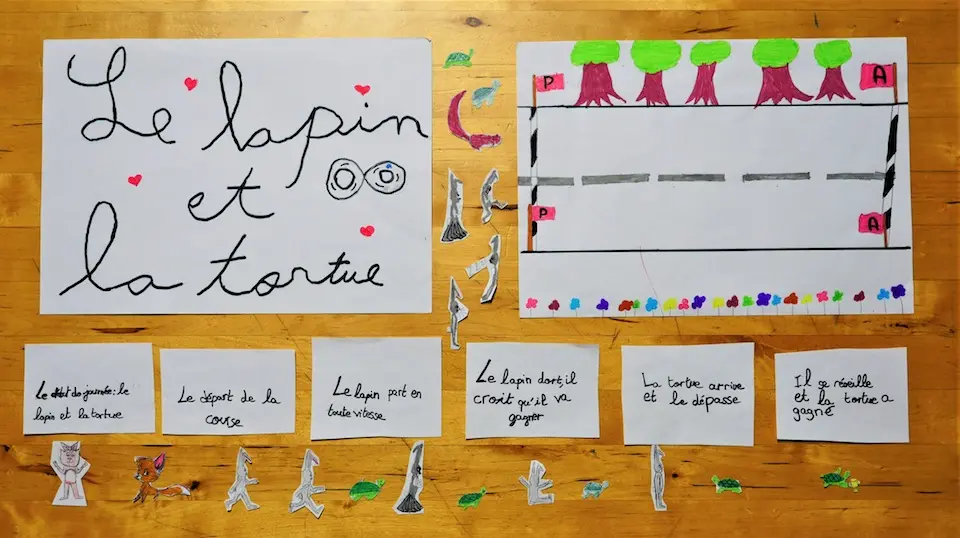 Le lapin
et
la tortue
P
A
P
A
Le début de journée: le
lapin et la tortue
Le départ de la
course
Le lapin part en
toute vitesse
Le lapin dort, il
croit qu'il va
gagner
La tortue arrive
et le dépasse
Il se réveille
et la tortue a
gagné